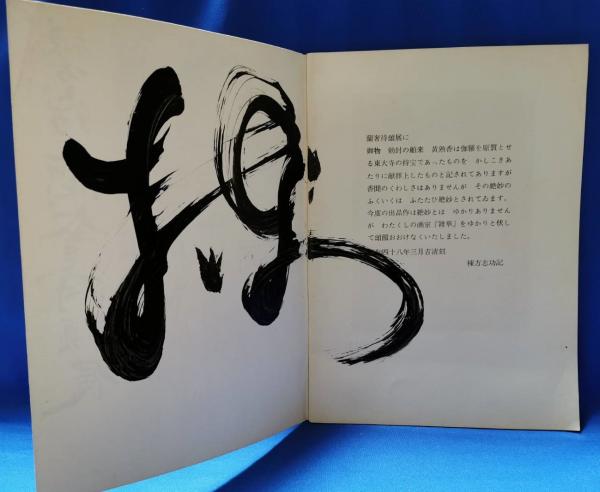 蘭奢待頌展に
御物 勅封の舶来 黄熟香は伽羅を原質とせ
る東大寺の持宝であったものを かしこきあ
たりに献擇上したものと記されてありますが
香聞のくわしさはありませんが その絶妙の
ふくいくは ふたたび絶妙とされてゐます。
今度の出品作は絶妙とは ゆかりありません
が わたくしの画室『雑華』をゆかりと伏し
て頭顱おおけなくいたしました。
四十八年三月吉清刻
棟方志功記